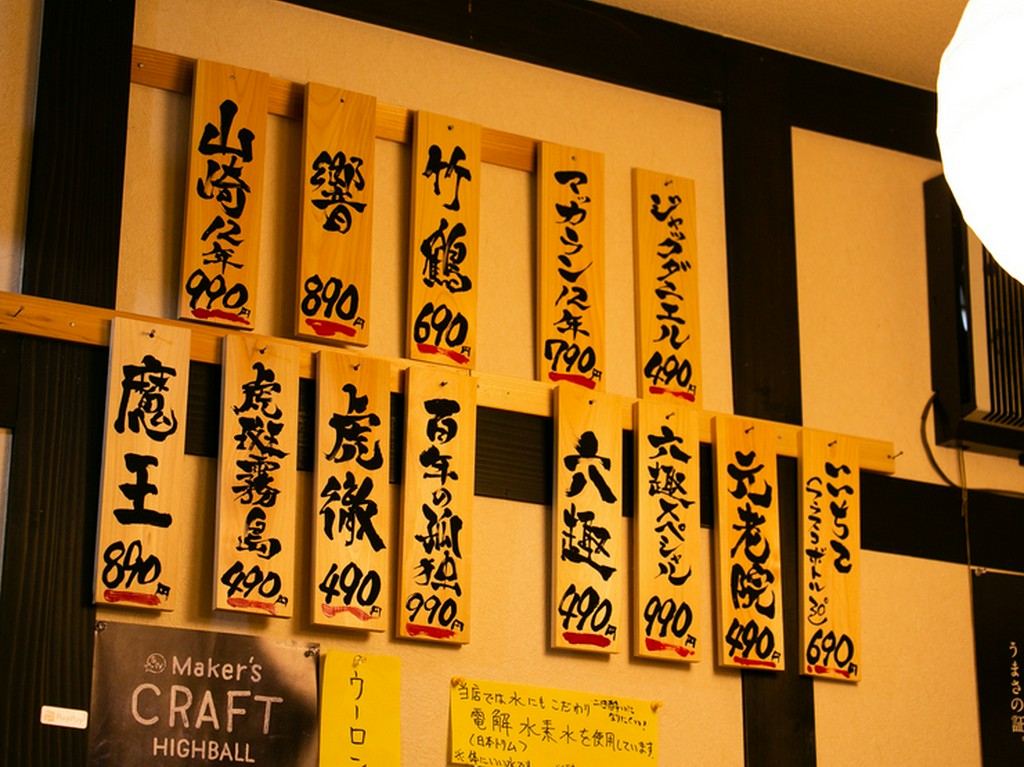 山崎12年
990円
響
890円
竹鶴
690円
マッカラン12年
790円
ジャックダニエル
490円
魔王
890円
虎斑霧島
490円
虎徹
490円
百年の孤独
990円
六趣
490円
六趣スペシャル
990円
元老院
490円
いいちこ
690円
Maker's
CRAFT
HIGHBALL
PayPay
ウーロン
当店では水にもこだわり
電解水素水を使用しています
(日本トリム)
※体にいい水です
うまさの証